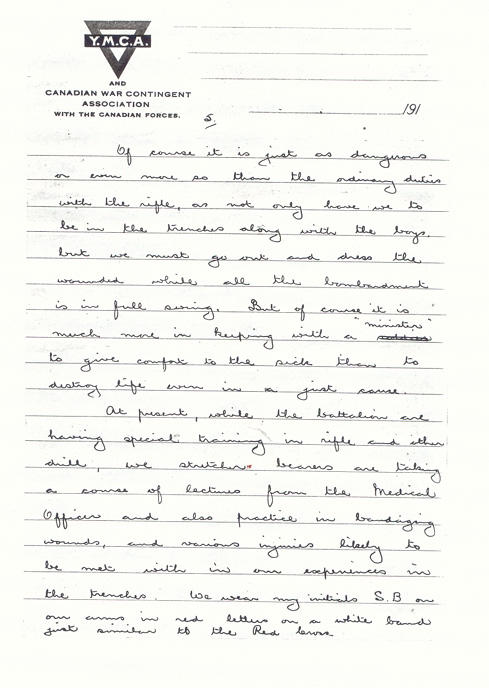 Y.M.C.A.
AND
CANADIAN WAR CONTINGENT
ASSOCIATION
WITH THE CANADIAN FORCES.
5.
191
Of course it is just as dangerous
or even more so than the ordinary duties
with the rifle, as not only have we to
be in the trenches along with the boys,
but we must go out and dress the
wounded while all the bombardment
is in full swing. But of course it is
much more in keeping with a "minister"
to give comfort to the sick than to
destroy life even in a just cause.
At present, while the battalion are
having special training in rifle and other
drill, we stretcher bearers are taking
a course of lectures from the Medical
Officer and also practice in bandaging
wounds, and various injuries likely to
be met with in our experiences in
the trenches. We wear my initials S.B on
our arms in red letters on a white band
just similar to the Red Cross